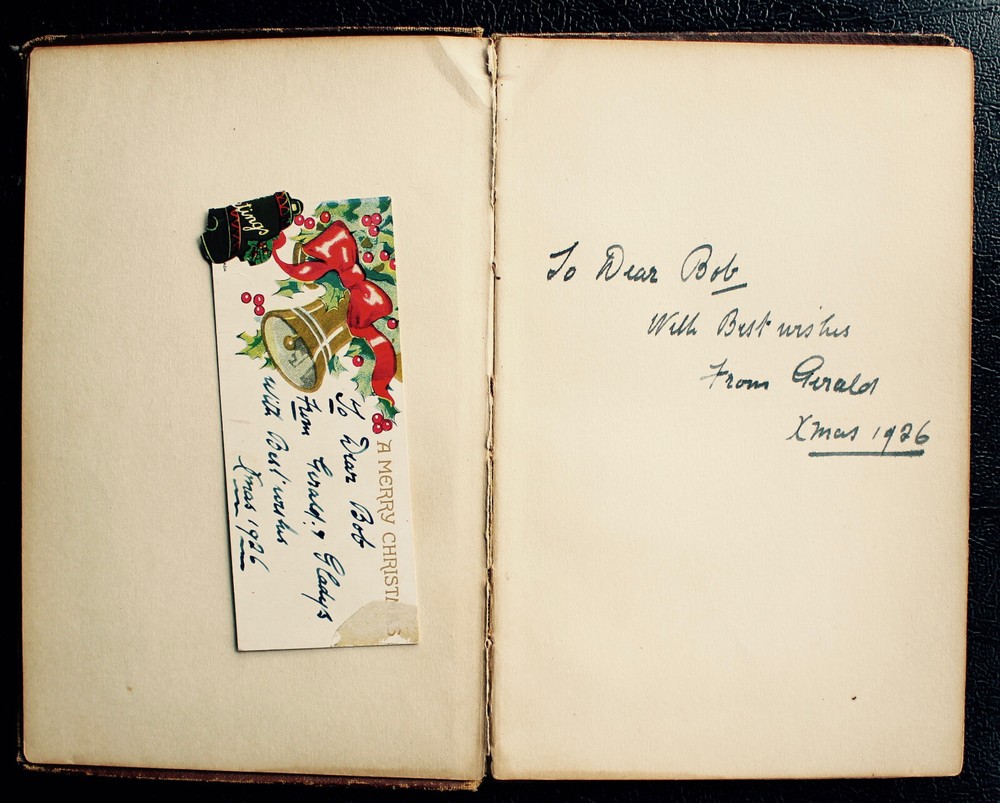 tings
A MERRY CHRISTMAS
To Dear Bob
From Gerald & Gladys
With Best wishes
Xmas 1926
To Dear Bob
With Best wishes
From Gerald
Xmas 1926